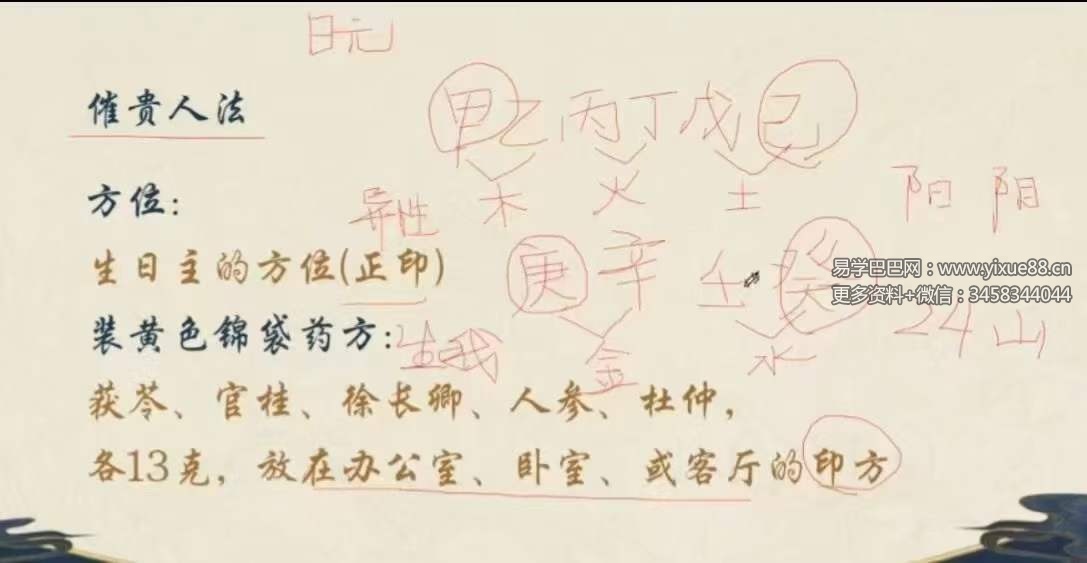 日元
催贵人法
甲乙丙丁戊己
方位:
异性 木 火 土 阳 阴
生日主的方位(正印) 庚辛 壬癸
易学巴巴网:www.yixue88.cn
更多资料+微信:3458344044
装黄色锦袋药方: 生我 金 水 24山
茯苓、官桂、徐长卿、人参、杜仲,
各13克,放在办公室、卧室、或客厅的印方